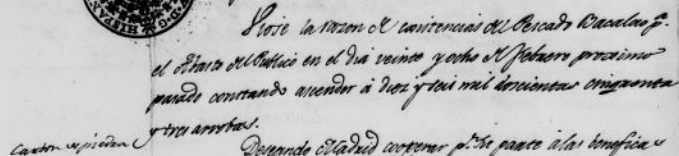 HISPAN
D. G.
Viose la razon de existencias del Pescado Bacalao p.ª
el Abasto del Publico en el dia veinte y ocho de Febrero proximo
pasado constando ascender á diez y seis mil doscientas cinquenta
y tres arrobas.
Deseando Madrid cooperar p.r su parte á las beneficas